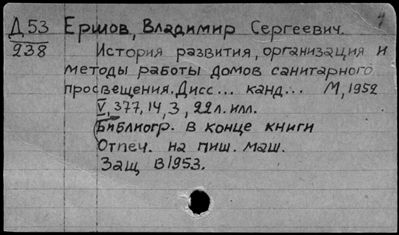 Д53 Ершов, Владимир Сергеевич.
938
История развития, организация и
методы работы домов санитарного
просвещения. Дисс... канд... М, 1952
V, 377, 14, 3, 22 л. илл.
(Библиогр. в конце книги
Отпеч. на пиш. маш.
Защ в 1953.